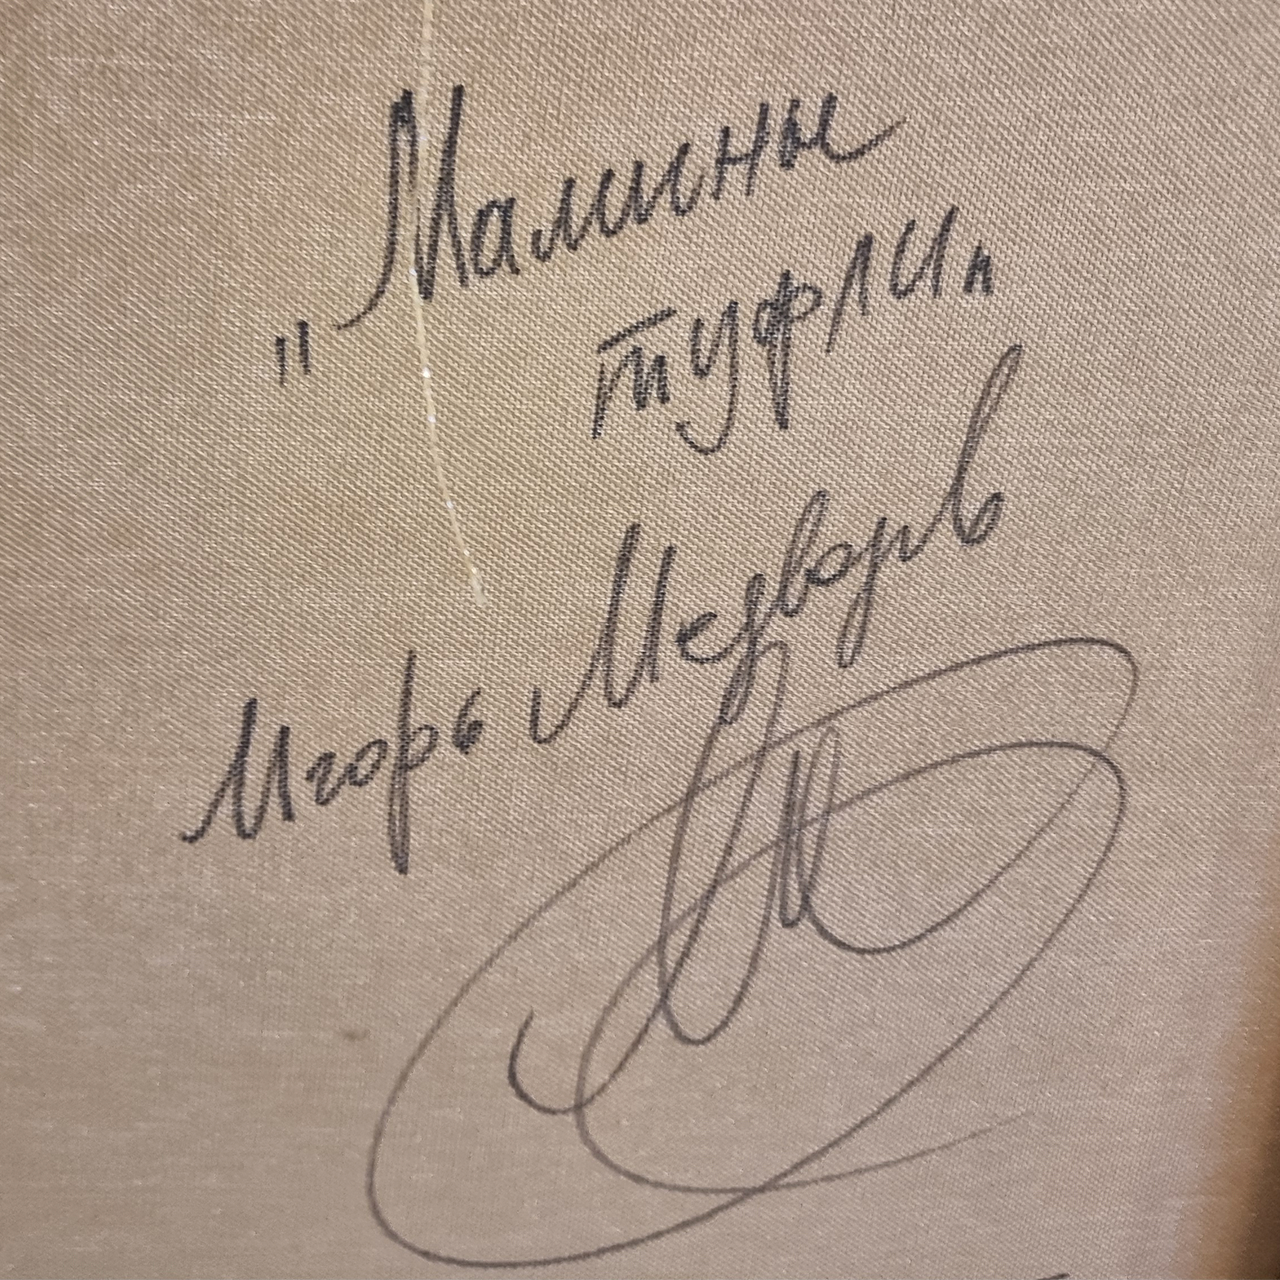 "Малины
туфли"
Игорь Медведев